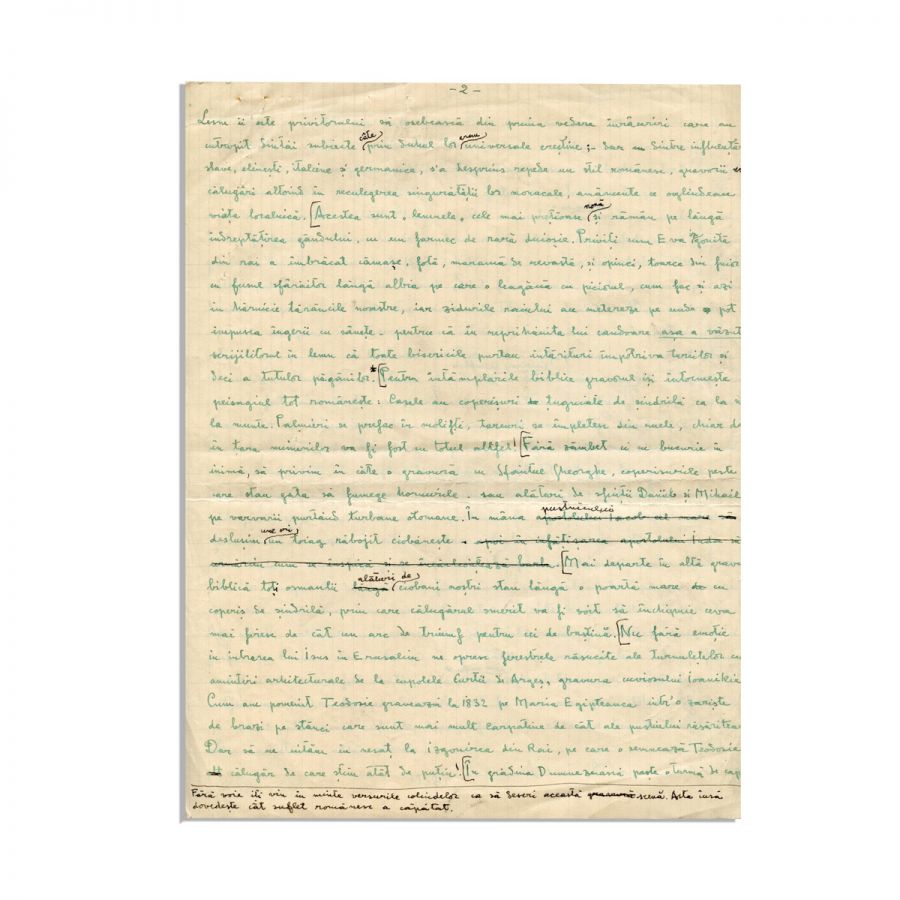 -2-
Lesne îi este privitorului să osebească din prima vedere înrâuriri care au
întrupit întâi subiecte câte prin duhul lor erau universale creștine; dar din dintre influențele
slave, elinești, italiene și germanice, s'a desprins repede un stil românesc, gravorii
călugări altoind în reculegerea singurătății lor monacale, amănunte ce oglindeau
viața localnică. [Acestea sunt, lemnele, cele mai prețioase nouă și rămân pe lângă
îndreptățirea gândului, cu un farmec de rară duioșie. Priviți cum Eva izgonită
din rai a îmbrăcat cămașe, fotă, maramă de nevastă, și opinci, toarce din fuior
cu fusul sfârâitor lângă albia pe care o leagănă cu piciorul, cum fac și azi
în hărnicie țărăncile noastre, iar zidurile raiului au metereze pe unde pot
împușca îngerii cu sânețe - pentru că în neprihănita lui candoare așa a văzut
scrijilitorul în lemn că toate bisericile purtau întărituri împotriva turcilor și
deci a tutulor păgânilor.* [Pentru întâmplările biblice gravorul își întocmește
peisagiul tot românește: Casele au coperișuri țuguiate de șindrilă ca la noi
la munte. Palmieri se prefac în molifți, țarcuri se împletesc din nuele, chiar dacă
în țara minunilor va fi fost cu totul altfel! [Fără zâmbet ci cu bucurie în
inimă, să privim în câte o gravură cu Sfântul Gheorghe, coperișurile peste
care stau gata să fumege hornurile - sau alături de sfinții Daniil și Mihail
pe vervarii purtând turbane otomane. În mâna pustnicului apostolului Iacob cel mare să
deslușim une ori un toiag răbojit ciobănește. apoi în înfățișarea apostolului Iuda să
urmărim cum se inspică și se încârlionțează barba. [Mai departe în altă gravură
biblică toți osmanlii lângă alături de ciobani noștri stau lângă o poartă mare cu
coperiș de șindrilă, prin care călugărul smerit va fi voit să închipuie ceva
mai firesc de cât un arc de triumf pentru cei de baștină. [Nu fără emoție
în intrarea lui Isus în Erusalim ne opresc ferestrele răsucite ale turnulețelor cu
amintiri arhitecturale de la cupolele Curtii de Argeș, gravura cuviosului Ioanikie
Cum am pomenit Teodosie gravează la 1832 pe Maria Egipteanca într'o zariște
de brazi pe stânci care sunt mai mult Carpatine de cât ale pustiului răsăritean
Dar să ne uităm în nesaț la izgonirea din Rai, pe care o semnează Teodosie
călugăr de care știm atât de puțin! [În grădina Dumnezeiască paște o turmă de cap
Fără voie îți vin în minte versurile colindelor ca să descri această gravură scenă. Asta însă
dovedește cât suflet românesc a căpătat.